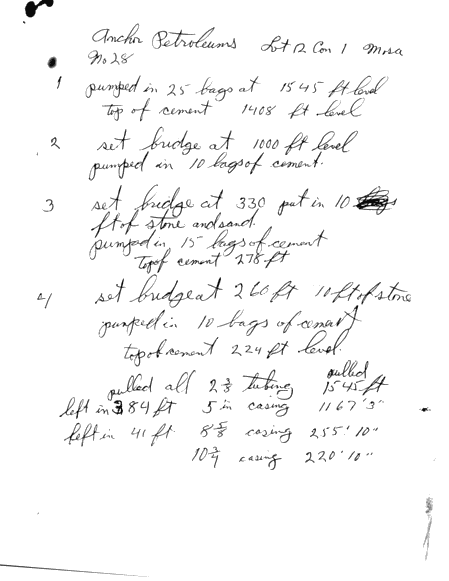 Anchor Petroleums Lot 12 Con 1 Mosa
No 28
1 pumped in 25 bags at 1545 ft level
top of cement 1408 ft level
2 set bridge at 1000 ft level
pumped in 10 bags of cement.
3 set bridge at 330 put in 10
ft of stone and sand.
pumped in 15 bags of cement
Top of cement 278 ft
4 set bridge at 260 ft 10 ft of stone
pumped in 10 bags of cement
top of cement 224 ft level.
pulled
pulled all 2 3/8 tubing 1545 ft
left in 384 ft 5 in casing 1167' 3"
left in 41 ft. 8 5/8 casing 255' 10"
10 3/4 casing 220' 10"